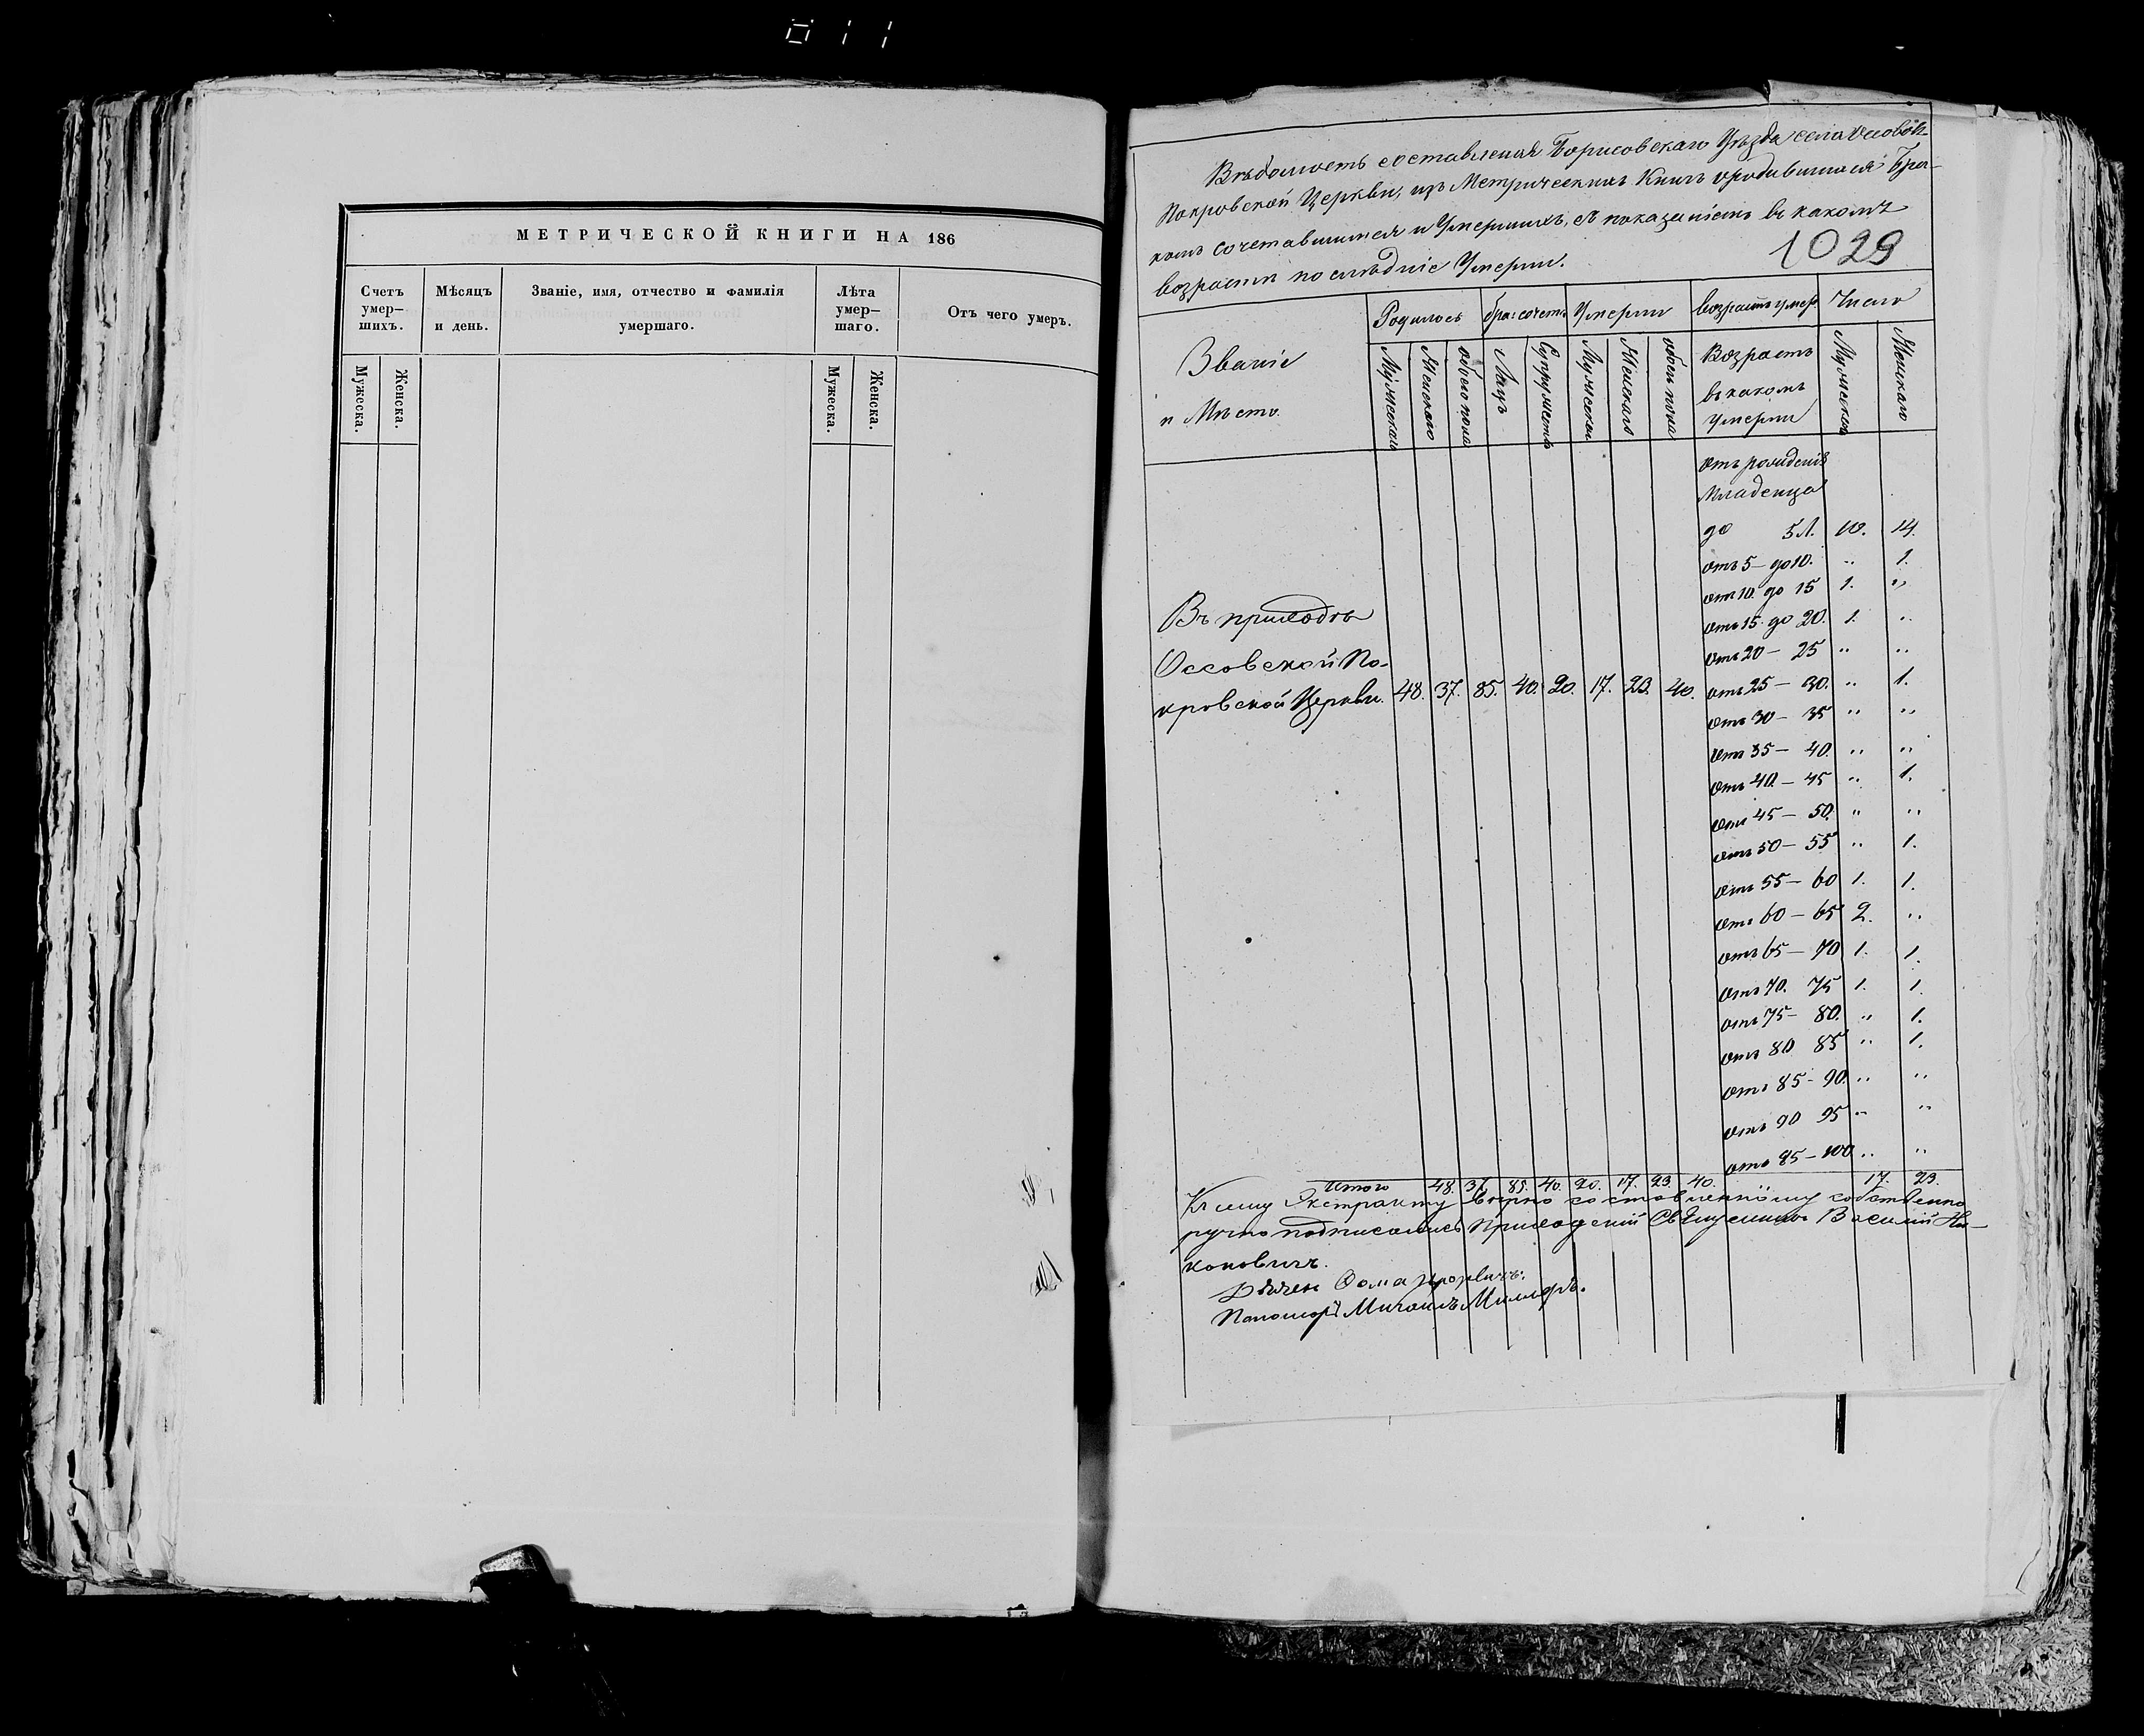 011
МЕТРИЧЕСКОЙ КНИГИ НА 186
Счетъ умер— шихъ.
Мѣсяцъ и день.
Званіе, имя, отчество и фамилія умершаго.
Лѣта умер— шаго.
Отъ чего умеръ.
Мужеска. Женска. Мужеска. Женска.
Вѣдомость составленая Борисовскаго Уѣзда села
Покровской Церкви, изъ Метрическихъ Книгъ о родившихся Бра-
комъ сочетавшихся и Умершихъ, съ показаніемъ въ какомъ
возрастѣ послѣдніе Умерли.
1029
Званіе и Мѣсто.
Родилось
бра: сочет:
Умерли
возрастъ умер
Число
Мужескаго Женскаго обоего пола Лицъ Супружествъ Мужескаго Женскаго обоего пола
Возрастъ въ какомъ Умерли
Мужескаго Женскаго
отъ рожденія
Младенца
до 5 Л. 10. 14.
отъ 5 — до 10. „ 1.
отъ 10. до 15 1. „
отъ 15. до 20. 1. „
отъ 20 — 25 „ „
Въ приходѣ
Оссовской По-
кровской Церкви. 48. 37. 85. 40. 20. 17. 23. 40. отъ 25 — 30. „ 1.
отъ 30 — 35 „ „
отъ 35 — 40. „ „
отъ 40. — 45 „ 1.
отъ 45 — 50. „ „
отъ 50 — 55 „ 1.
отъ 55 — 60 1. 1.
отъ 60 — 65 2. „
отъ 65 — 70 1. 1.
отъ 70. 75 1. 1.
отъ 75 — 80. „ 1.
отъ 80 85 „ 1.
отъ 85 - 90. „ „
отъ 90 95 „ „
отъ 95 — 100 „ „
Итого 48. 37. 85. 40. 20. 17. 23. 40. 17. 23.
Къ сему Экстракту вѣрно составленному собственно
ручно подписались Приходскій Священникъ Василій Ни-
коновичъ.
Дьячек Ѳома
Пономорь Михаилъ